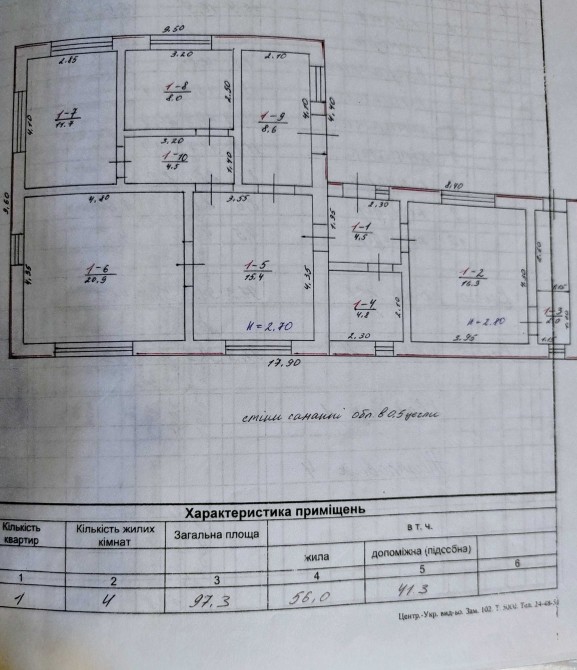 9.50
2.85
3.20
2.10
1-7
11.7
4.10
1-8
8.0
2.50
1-9
8.6
4.10
4.40
3.20
1-10
4.5
1.40
9.60
4.80
3.55
1.95
2.30
8.40
1-1
4.5
1-6
20.9
4.35
1-5
15.4
4.35
1-2
16.3
1-3
2.0
1.15
1-4
4.8
2.10
H=2.70
H=2.80
2.30
3.95
1.15
17.90
стіни саманні обл. в 0.5 цегли
Характеристика приміщень
Кількість квартир
Кількість жилих кімнат
Загальна площа
в т. ч.
жила
допоміжна (підсобна)
1 2 3 4 5 6
1 4 97,3 56,0 41.3
Центр.-Укр. вид-во. Зам. 102. Т.